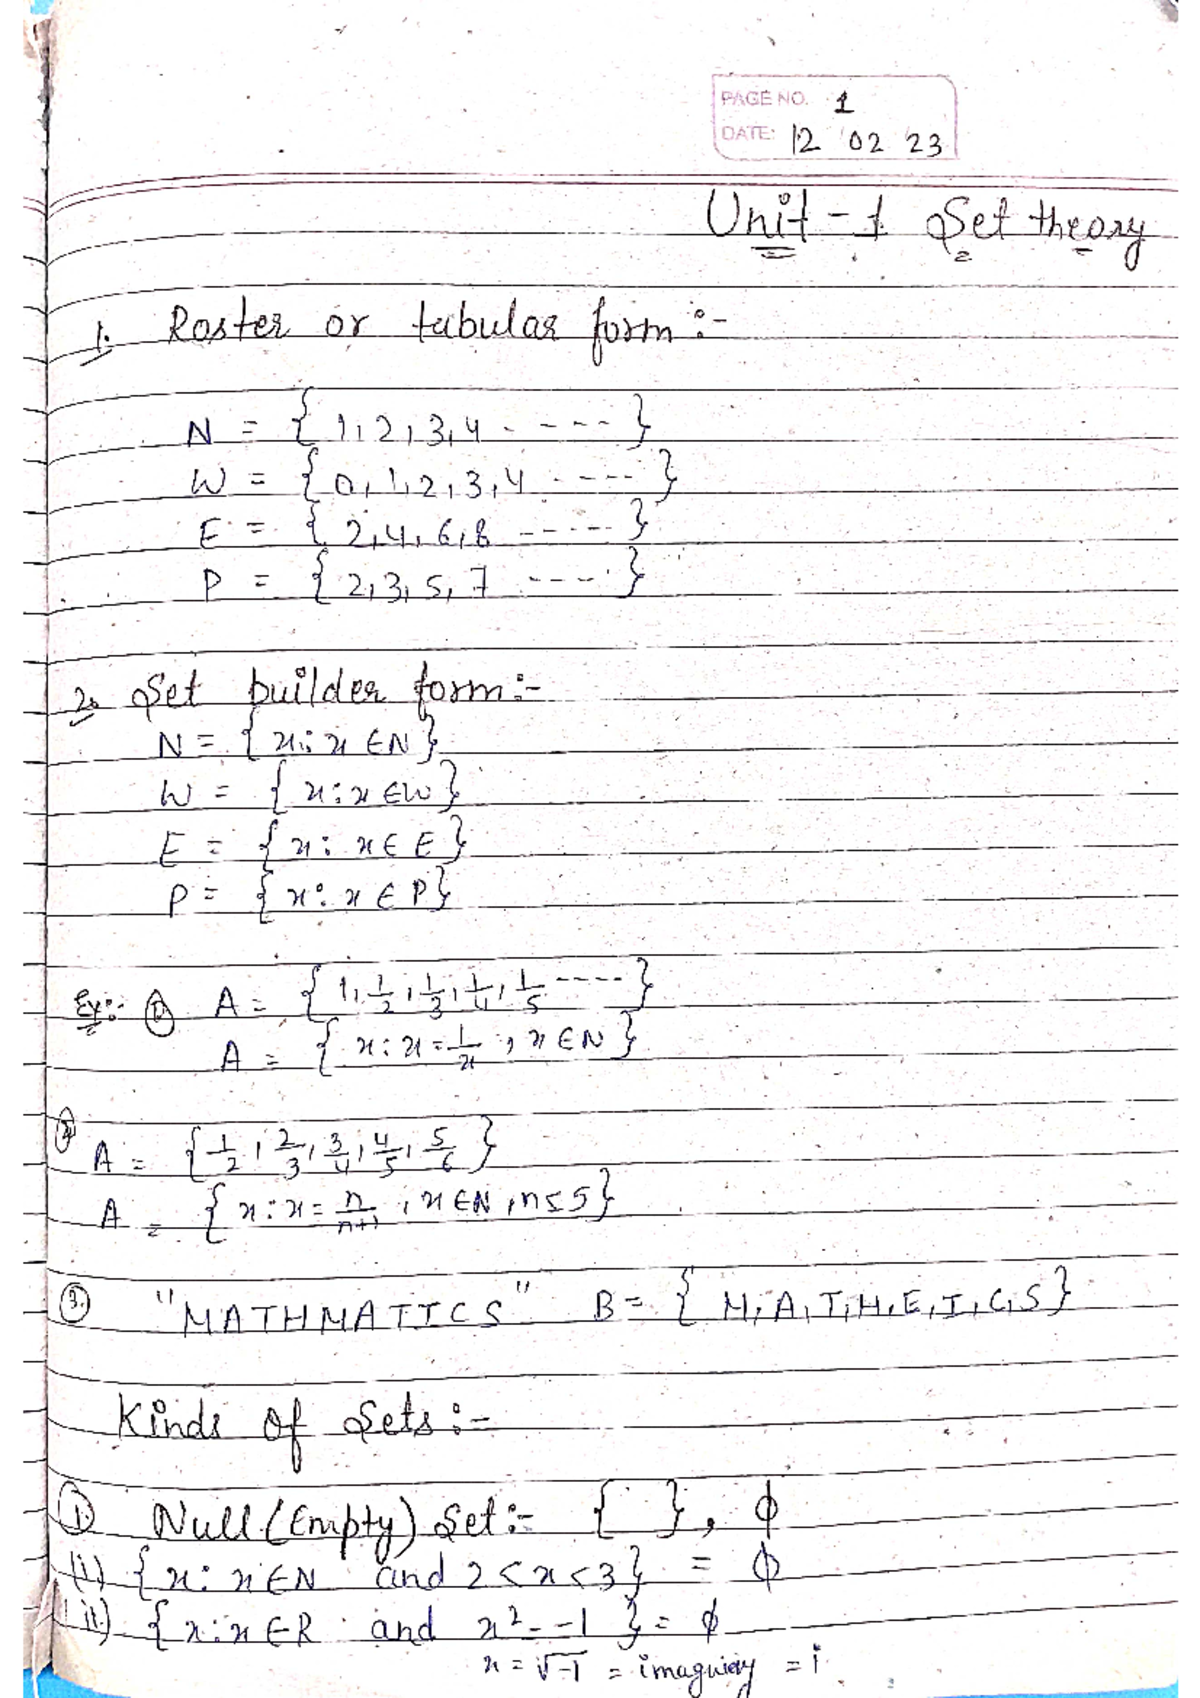 PAGE NO. 1
DATE: 12 02 23
Unit - 1 Set theory
1. Roster or tabular form :-
N = { 1, 2, 3, 4 . - - - - }
W = { 0, 1, 2, 3, 4 . - - - - }
E = { 2, 4, 6, 8 - - - - - }
P = { 2, 3, 5, 7 - - - - }
2. Set builder form :-
N = { x : x ∈ N }
W = { x : x ∈ W }
E = { x : x ∈ E }
P = { x : x ∈ P }
Ex :- ① A = { 1, 1/2, 1/3, 1/4, 1/5 - - - - }
A = { x : x = 1/x , x ∈ N }
② A = { 1/2, 2/3, 3/4, 4/5, 5/6 }
A = { x : x = n/n+1 , x ∈ N, n ≤ 5 }
③ "MATHMATICS" B = { M, A, T, H, E, I, C, S }
Kinds of Sets :-
① Null (Empty) Set :- { } , ϕ
(i) { x : x ∈ N and 2 < x < 3 } = ϕ
(ii) { x : x ∈ R and x² = -1 } = ϕ
x = √-1 = imaguiry = i